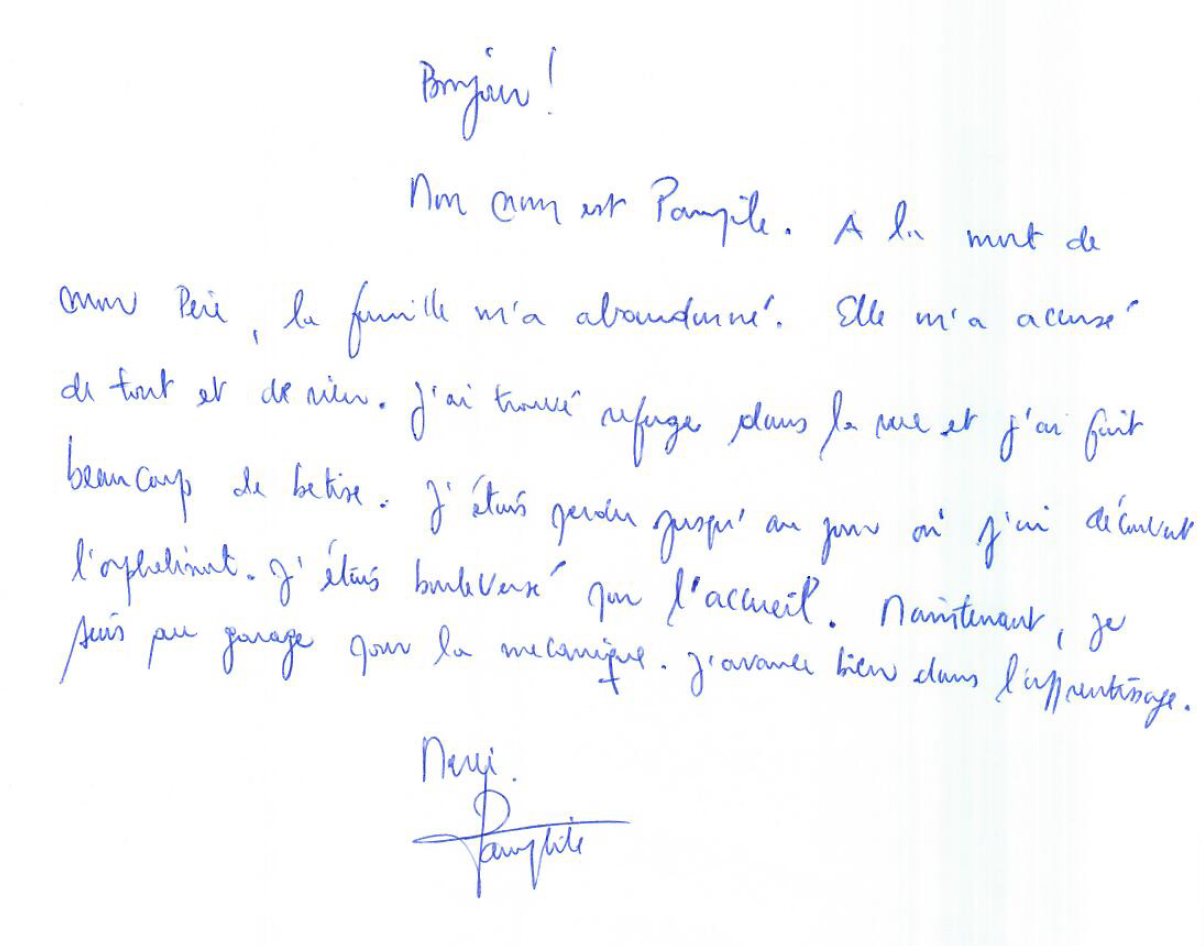 Bonjour !
Mon nom est Pampile. A la mort de
mon Père, la famille m'a abandonné. Elle m'a accusé
de tout et de rien. J'ai trouvé refuge dans la rue et j'ai fait
beaucoup de betise. J'étais perdu jusqu'au jour où j'ai découvert
l'orphelinat. J'étais bouleversé par l'accueil. Maintenant, je
suis au garage pour la mecanique. J'avance bien dans l'apprentissage.
Merci.
Pamphile